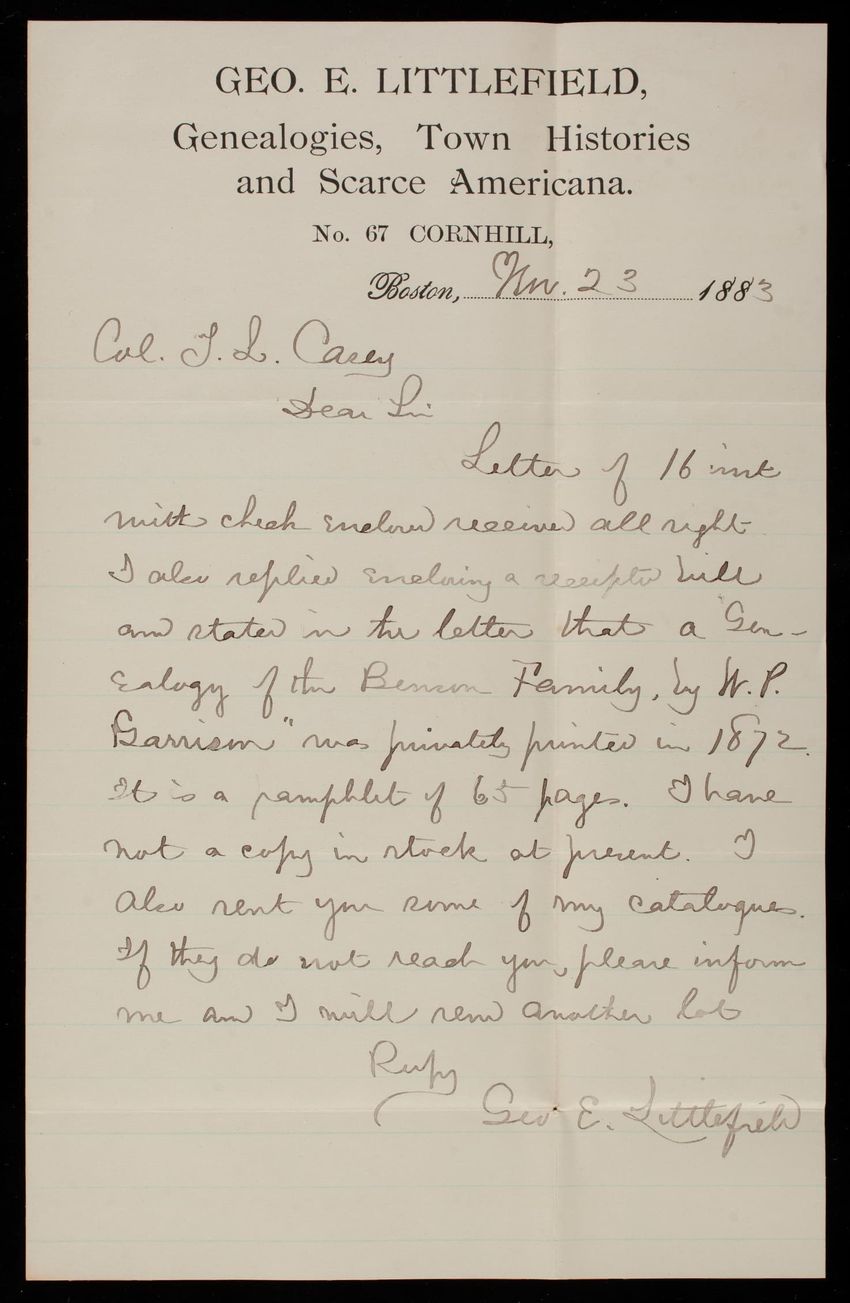 GEO. E. LITTLEFIELD,
Genealogies, Town Histories
and Scarce Americana.
No. 67 CORNHILL,
Boston, Nov. 23 1883
Col. T. L. Casey
Dear Sir
Letter of 16 inst
with check enclosed received all right
I also replied enclosing a receipted bill
and stated in the letter that a "Gen-
ealogy of the Benson Family, by W. P.
Garrison" was privately printed in 1872.
It is a pamphlet of 65 pages. I have
not a copy in stock at present. I
also sent you some of my catalogues.
If they do not reach you, please inform
me and I will send another lot
Respy
Geo E. Littlefield